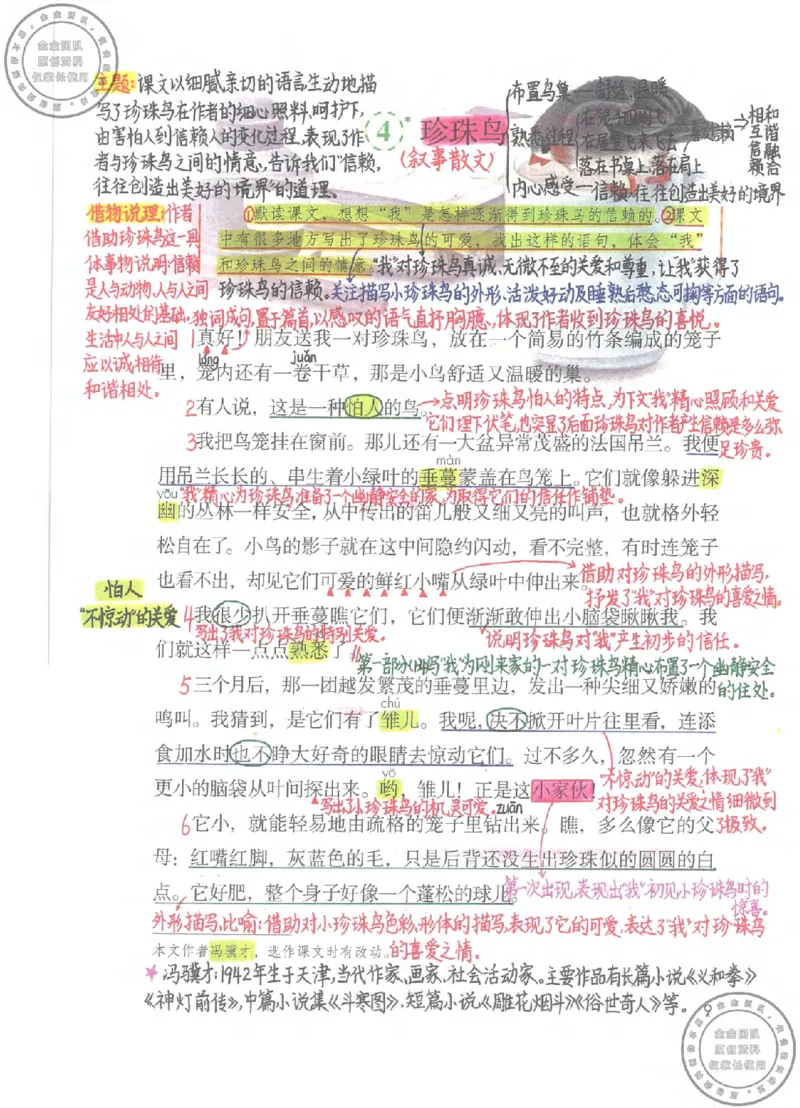 金金团队
原创资料
仅家长使用
主题:课文以细腻亲切的语言,生动地描
写了珍珠鸟在作者的细心照料、呵护下,
由害怕人到信赖人的变化过程,表现了作
者与珍珠鸟之间的情意,告诉我们“信赖,
往往创造出美好的境界”的道理。
4* 珍珠鸟
(叙事散文)
布置鸟巢—舒适、温暖
熟悉过程
在笼子四周飞
在屋里飞来飞去
落在书桌上,落在肩上
内心感受—信赖,往往创造出美好的境界
相互信赖
和谐融合
借物说理:作者
借助珍珠鸟这一具
体事物说明:信赖
是人与动物、人与人之间
友好相处的基础,
生活中人与人之间
应以诚相待
和谐相处。
①默读课文,想想“我”是怎样逐渐得到珍珠鸟的信赖的。②课文
中有很多地方写出了珍珠鸟的可爱,找出这样的语句,体会“我”
和珍珠鸟之间的情意。“我”对珍珠鸟真诚、无微不至的关爱和尊重,让“我”获得了
珍珠鸟的信赖。关注描写小珍珠鸟的外形、活泼好动及睡熟后憨态可掬等方面的语句。
独词成句,置于篇首,以感叹的语气直抒胸臆,体现了作者收到珍珠鸟的喜悦。
真好!朋友送我一对珍珠鸟,放在一个简易的竹条编成的笼子
lóng juǎn
里,笼内还有一卷干草,那是小鸟舒适又温暖的巢。
2有人说,这是一种怕人的鸟。→点明珍珠鸟怕人的特点,为下文“我”精心照顾和关爱
它们埋下伏笔,也突显了后面珍珠鸟对作者产生信赖是多么弥
足珍贵。
3我把鸟笼挂在窗前。那儿还有一大盆异常茂盛的法国吊兰。我便
màn
用吊兰长长的、串生着小绿叶的垂蔓蒙盖在鸟笼上。它们就像躲进深
yōu “我”精心为珍珠鸟准备了一个幽静安全的家,为取得它们的信任作铺垫。
幽的丛林一样安全,从中传出的笛儿般又细又亮的叫声,也就格外轻
松自在了。小鸟的影子就在这中间隐约闪动,看不完整,有时连笼子
也看不出,却见它们可爱的鲜红小嘴从绿叶中伸出来。
借助对珍珠鸟的外形描写,
抒发了“我”对珍珠鸟的喜爱之情。
怕人
“不惊动”的关爱
4我很少扒开垂蔓瞧它们,它们便渐渐敢伸出小脑袋瞅瞅我。我
写出了我对珍珠鸟的特别关爱。
说明珍珠鸟对“我”产生初步的信任。
们就这样一点点熟悉了。
第一部分(1-4):写“我”为刚来家的一对珍珠鸟精心布置了一个幽静安全
的住处。
5三个月后,那一团越发繁茂的垂蔓里边,发出一种尖细又娇嫩的
chú
鸣叫。我猜到,是它们有了雏儿。我呢,决不掀开叶片往里看,连添
食加水时也不睁大好奇的眼睛去惊动它们。过不多久,忽然有一个
yō
更小的脑袋从叶间探出来。哟,雏儿!正是这小家伙!
“不惊动”的关爱,体现了“我”
对珍珠鸟的关爱之情细微到
了极致。
写出了小珍珠鸟的机灵可爱。
zuān
6它小,就能轻易地由疏格的笼子里钻出来。瞧,多么像它的父
母:红嘴红脚,灰蓝色的毛,只是后背还没生出珍珠似的圆圆的白
点。它好肥,整个身子好像一个蓬松的球儿。
第一次出现,表现出“我”初见小珍珠鸟时的
惊喜。
外形描写、比喻:借助对小珍珠鸟色彩、形体的描写,表现了它的可爱,表达了“我”对珍珠鸟
的喜爱之情。
本文作者冯骥才,选作课文时有改动。
★冯骥才:1942年生于天津,当代作家、画家、社会活动家。主要作品有长篇小说《义和拳》
《神灯前传》,中篇小说集《斗寒图》、短篇小说《雕花烟斗》《俗世奇人》等。
9
金金团队
原创资料
仅家长使用